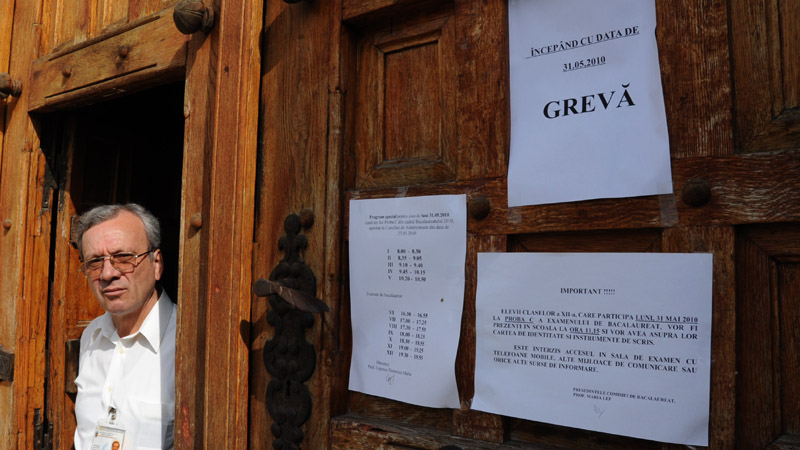 ÎNCEPÂND CU DATA DE
31.05.2010
GREVĂ
Program special pentru ziua de luni 31.05.2010
aprobat în Consiliul de Administrație din data de
I 8.00 - 8.30
II 8.35 - 9.05
III 9.10 - 9.40
IV 9.45 - 10.15
V 10.20 - 10.50
VI 16.30 - 16.55
VII 17.00 - 17.25
VIII 17.30 - 17.55
IX 18.00 - 18.25
X 18.30 - 18.55
XI 19.00 - 19.25
XII 19.30 - 19.55
Director,
IMPORTANT !!!!!
ELEVII CLASELOR a XII-a, CARE PARTICIPA LUNI, 31 MAI 2010
LA PROBA C A EXAMENULUI DE BACALAUREAT, VOR FI
PREZENTI IN SCOALA LA ORA 11,15 SI VOR AVEA ASUPRA LOR
CARTEA DE IDENTITATE SI INSTRUMENTE DE SCRIS.
ESTE INTERZIS ACCESUL IN SALA DE EXAMEN CU
TELEFOANE MOBILE, ALTE MIJLOACE DE COMUNICARE SAU
ORICE ALTE SURSE DE INFORMARE.
PRESEDINTELE COMISIEI DE BACALAUREAT,
PROF. MARIA LEF